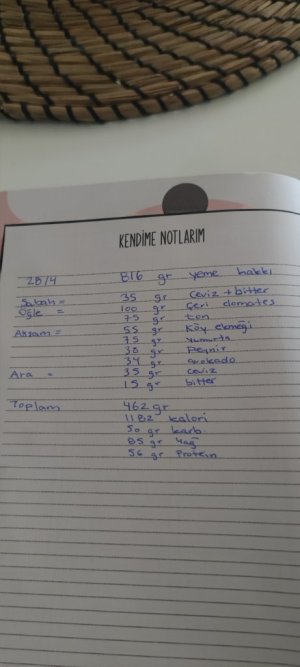 KENDİME NOTLARIM
28/4 816 gr yeme hakkı
Sabah = 35 gr Ceviz + bitter
Öğle = 100 gr Çeri domates
75 gr ton
Akşam = 55 gr Köy ekmeği
75 gr Yumurta
38 gr Peynir
34 gr avokado
Ara = 35 gr ceviz
15 gr bitter
Toplam 462 gr
1182 kalori
50 gr karb.
85 gr Yağ
56 gr Protein